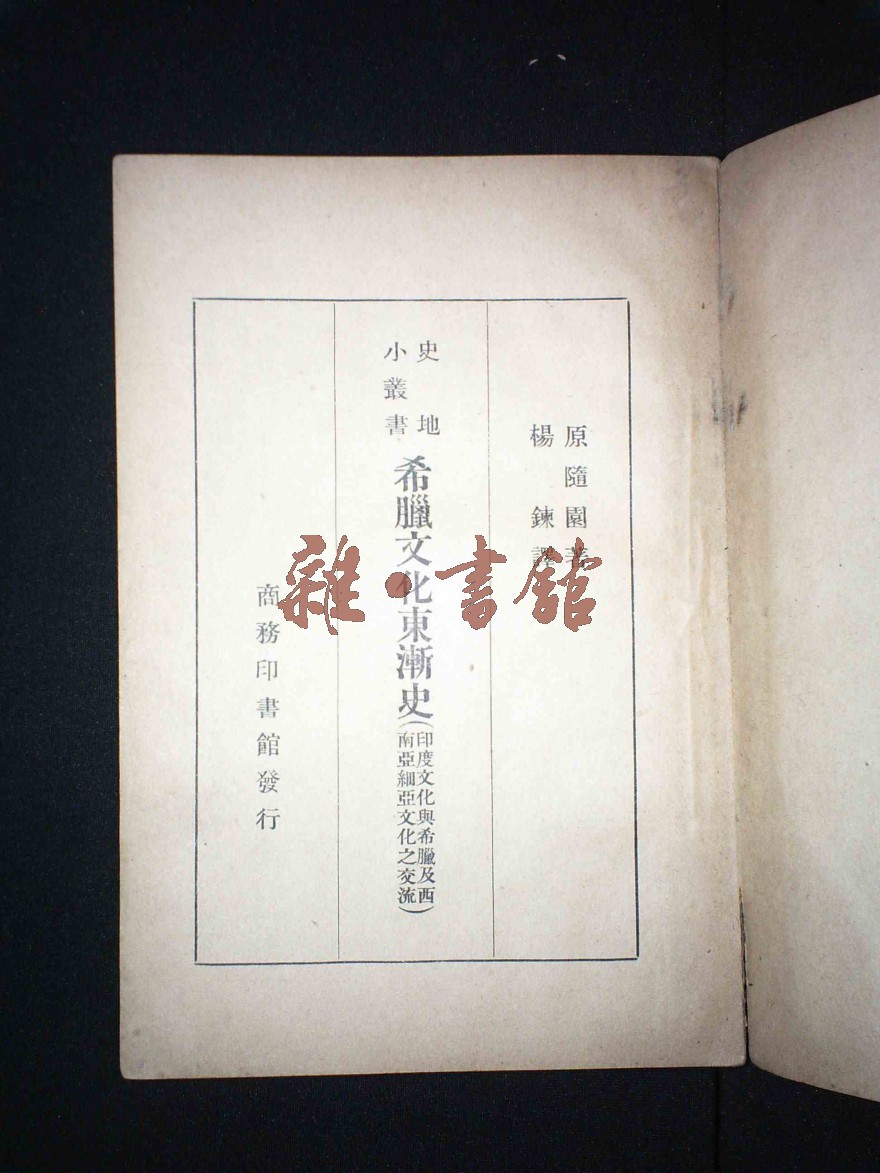 原隨園著
楊鍊譯
史地
小叢書
希臘文化東漸史
(印度文化與希臘及西
南亞細亞文化之交流)
商務印書館發行
雜•書館